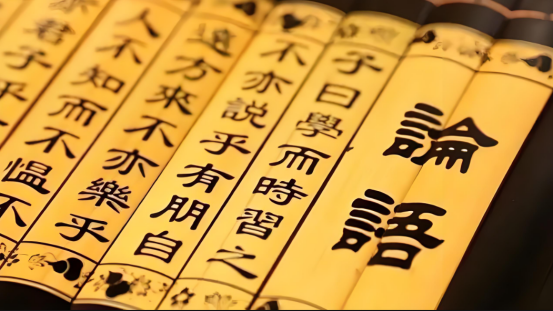 論語
子曰學而時習之
不亦説乎有朋自
遠方來不亦樂乎
人不知而不愠不
亦君子乎